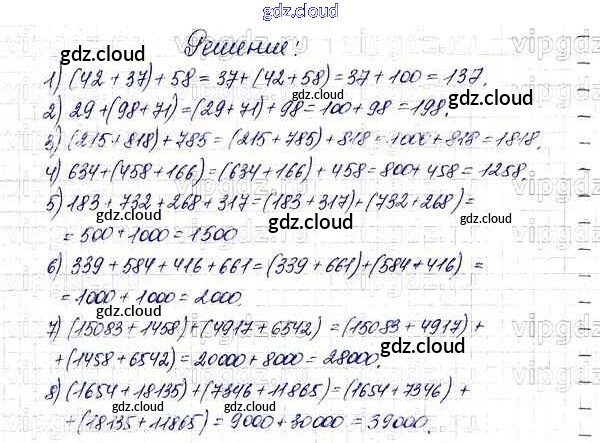 gdz.cloud
Решение:
1) (42 + 37) + 58 = 37 + (42 + 58) = 37 + 100 = 137.
2) 29 + (98 + 71) = (29 + 71) + 98 = 100 + 98 = 198.
3) (215 + 818) + 785 = (215 + 785) + 818 = 1000 + 818 = 1818.
4) 634 + (458 + 166) = (634 + 166) + 458 = 800 + 458 = 1258.
5) 183 + 732 + 268 + 317 = (183 + 317) + (732 + 268) =
= 500 + 1000 = 1500
6) 339 + 584 + 416 + 661 = (339 + 661) + (584 + 416) =
= 1000 + 1000 = 2000.
7) (15083 + 1458) + (4917 + 6542) = (15083 + 4917) +
+ (1458 + 6542) = 20000 + 8000 = 28000.
8) (1654 + 18135) + (7346 + 11865) = (1654 + 7346) +
+ (18135 + 11865) = 9000 + 30000 = 39000.